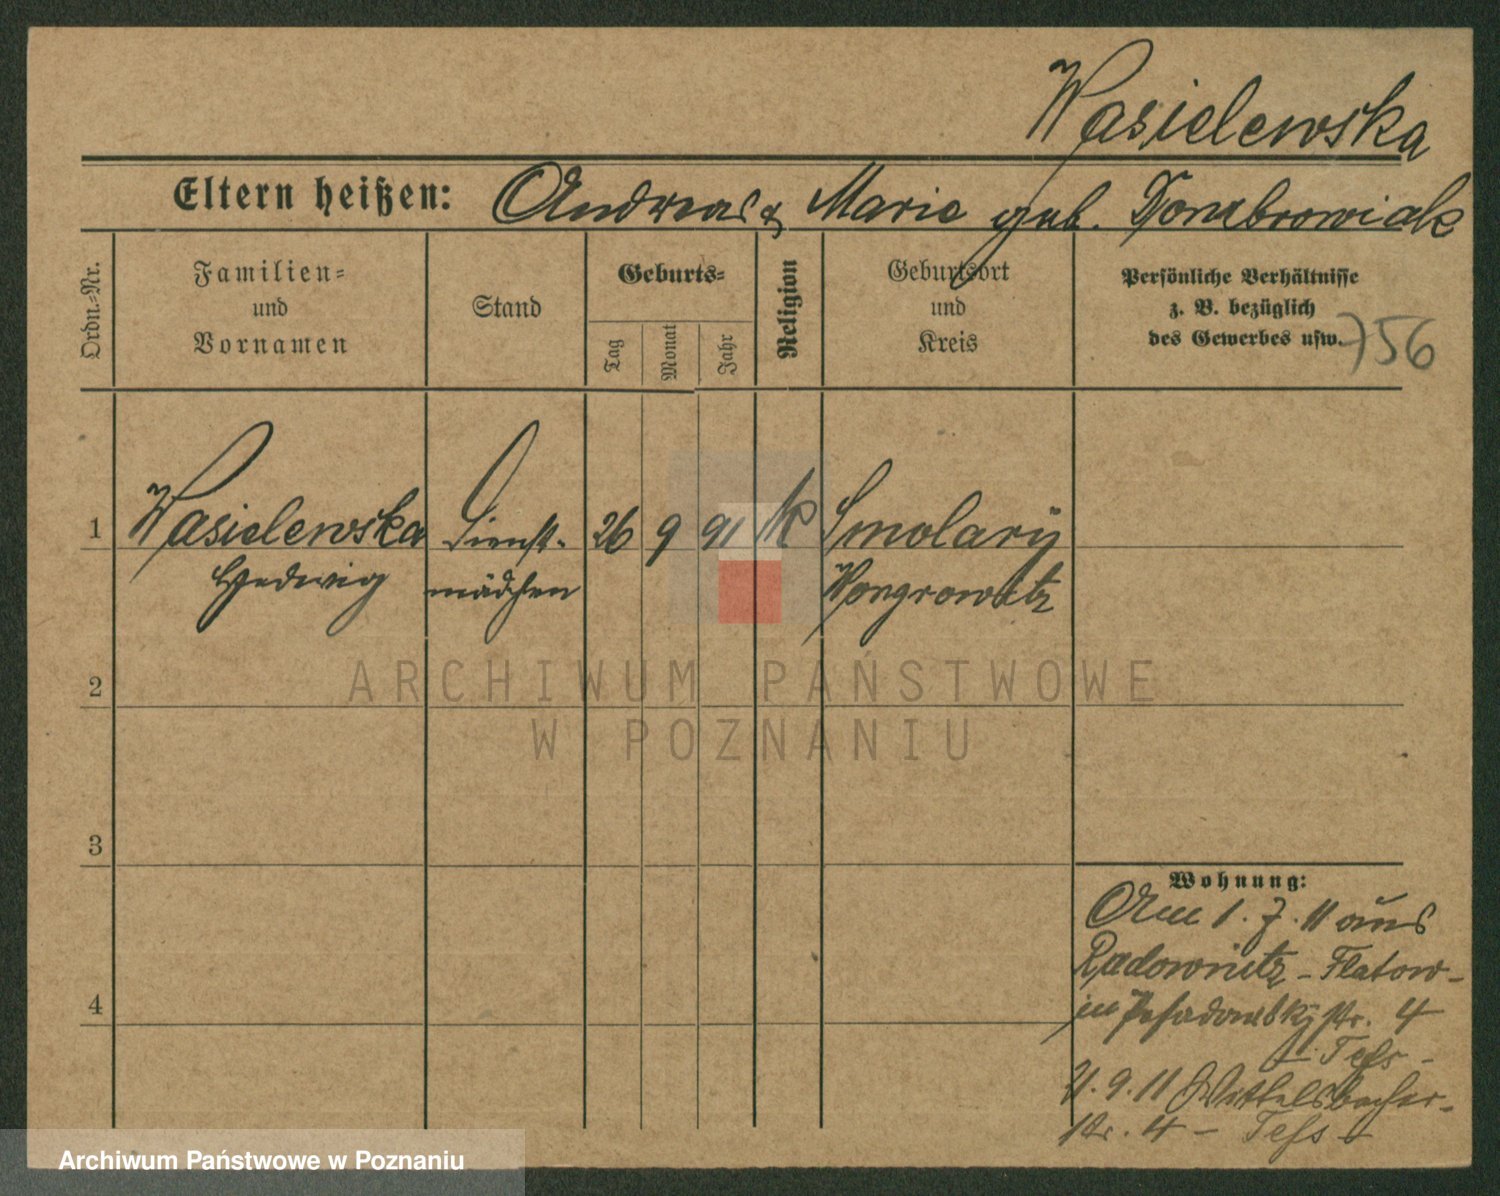 Wasielewska
Eltern heißen: Andreas & Marie geb. Dombrowiak
Ordn.=Nr.
Familien=
und
Vornamen
Stand
Geburts=
Tag
Monat
Jahr
Religion
Geburtsort
und
Kreis
Persönliche Verhältnisse
z. B. bezüglich
des Gewerbes usw.
756
1 Wasielewska Dienst- 26 9 91 k Smolary
Hedwig mädchen Wongrowitz
2
3
4
Wohnung:
Am 1. 7. 11 aus
Radownitz - Flatow -
in Posadowskystr. 4
21. 9. 11 Wittelsbacher-
str. 4 -
ARCHIWUM PAŃSTWOWE
W POZNANIU
Archiwum Państwowe w Poznaniu